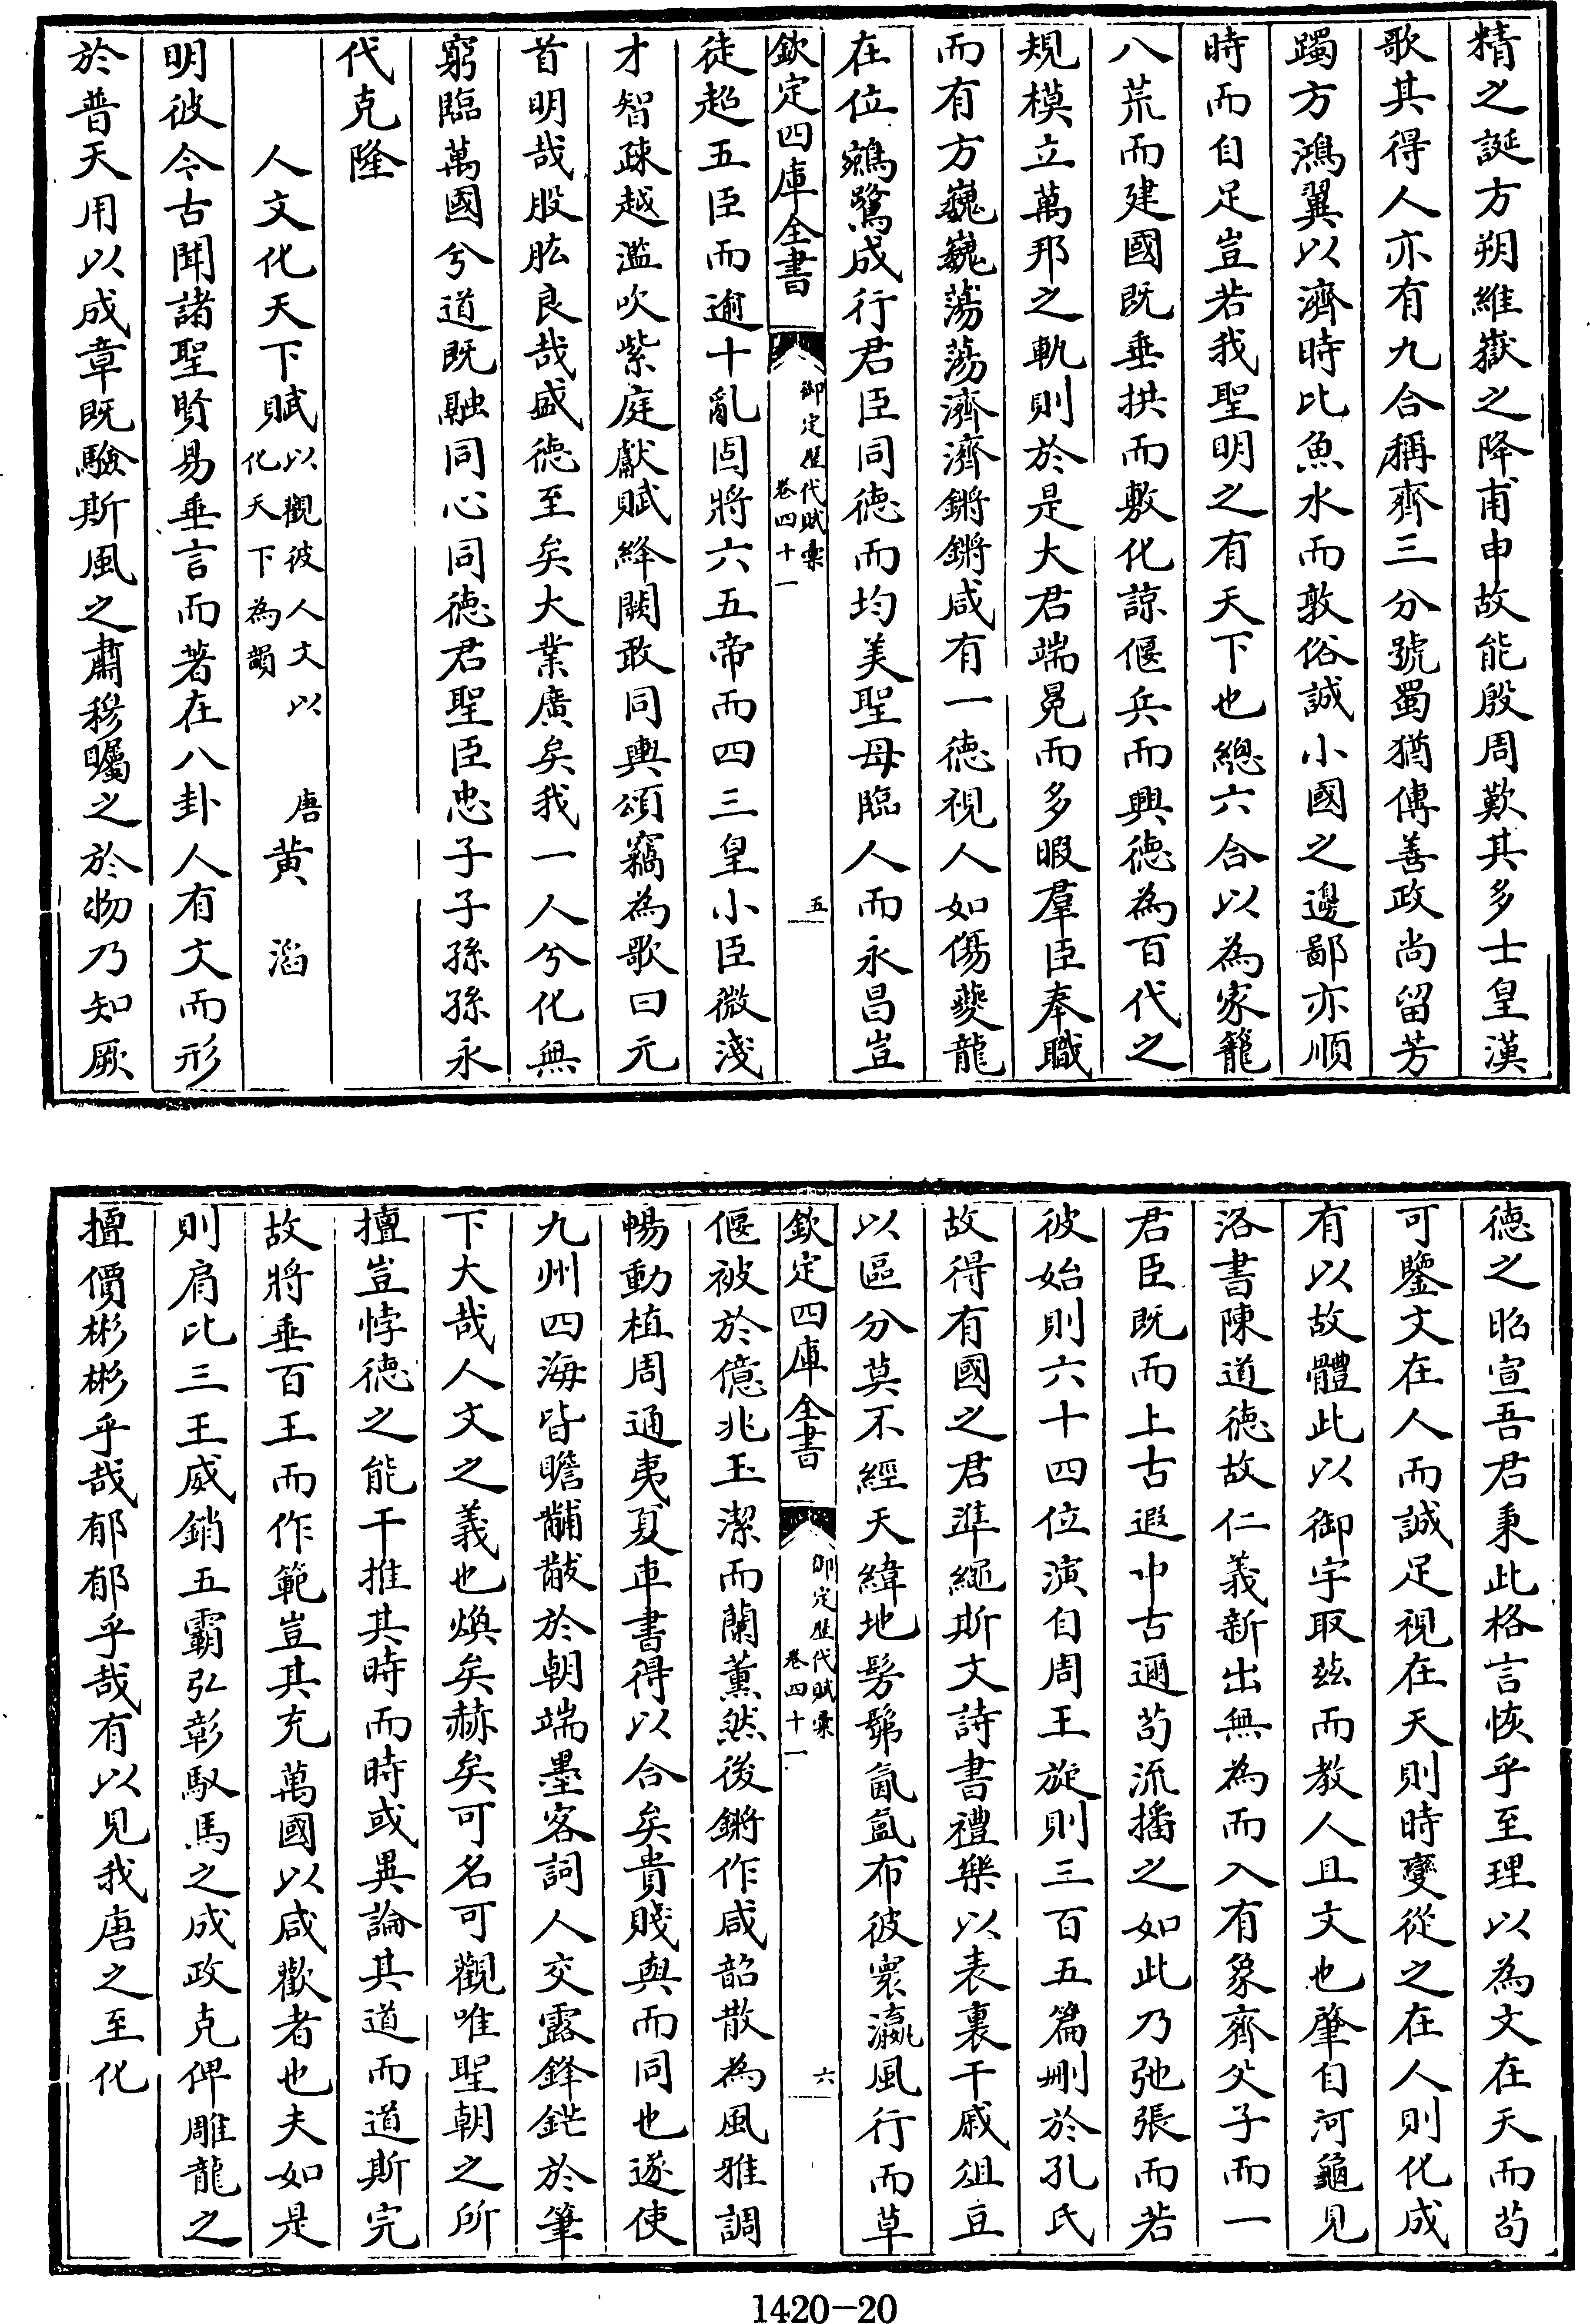 精之誕方朔維嶽之降甫申故能殷周歎其多士皇漢
歌其得人亦有九合稱齊三分號蜀猶傳善政尚留芳
躅方鴻翼以濟時比魚水而敦俗誠小國之邊鄙亦順
時而自足豈若我聖明之有天下也總六合以為家籠
八荒而建國既垂拱而敷化諒偃兵而興德為百代之
規模立萬邦之軌則於是大君端冕而多暇羣臣奉職
而有方巍巍蕩蕩濟濟鏘鏘咸有一德視人如傷夔龍
在位鵷鷺成行君臣同德而均美聖母臨人而永昌豈
欽定四庫全書
御定歷代賦彙
卷四十一
五
徒超五臣而逾十亂固將六五帝而四三皇小臣微淺
才智疎越濫吹紫庭獻賦絳闕敢同輿頌竊為歌曰元
首明哉股肱良哉盛德至矣大業廣矣我一人兮化無
窮臨萬國兮道既融同心同德君聖臣忠子子孫孫永
代克隆
人文化天下賦以觀彼人文以化天下為韻 唐黃滔
明彼今古聞諸聖賢易垂言而著在八卦人有文而形
於普天用以成章既驗斯風之肅穆矚之於物乃知厥
德之昭宣吾君秉此格言恢乎至理以為文在天而苟
可鑒文在人而誠足視在天則時變從之在人則化成
有以故體此以御宇取茲而教人且文也肇自河龜見
洛書陳道德故仁義新出無為而入有象齊父子而一
君臣既而上古遐中古邇茍流播之如此乃弛張而若
彼始則六十四位演自周王旋則三百五篇刪於孔氏
故得有國之君準繩斯文詩書禮樂以表裏干戚俎豆
以區分莫不經天緯地髣髴氤氳布彼寰瀛風行而草
欽定四庫全書
御定歷代賦彙
卷四十一
六
偃被於億兆玉潔而蘭薰然後鏘作咸韶散為風雅調
暢動植周通夷夏車書得以合矣貴賤與而同也遂使
九州四海皆瞻黼黻於朝端墨客詞人交露鋒鋩於筆
下大哉人文之義也煥矣赫矣可名可觀唯聖朝之所
擅豈悖德之能干推其時而時或異論其道而道斯完
故將垂百王而作範豈其充萬國以咸歡者也夫如是
則肩比三王威銷五霸弘彰馭馬之成政克俾雕龍之
擅價彬彬乎哉郁郁乎哉有以見我唐之至化
1420-20